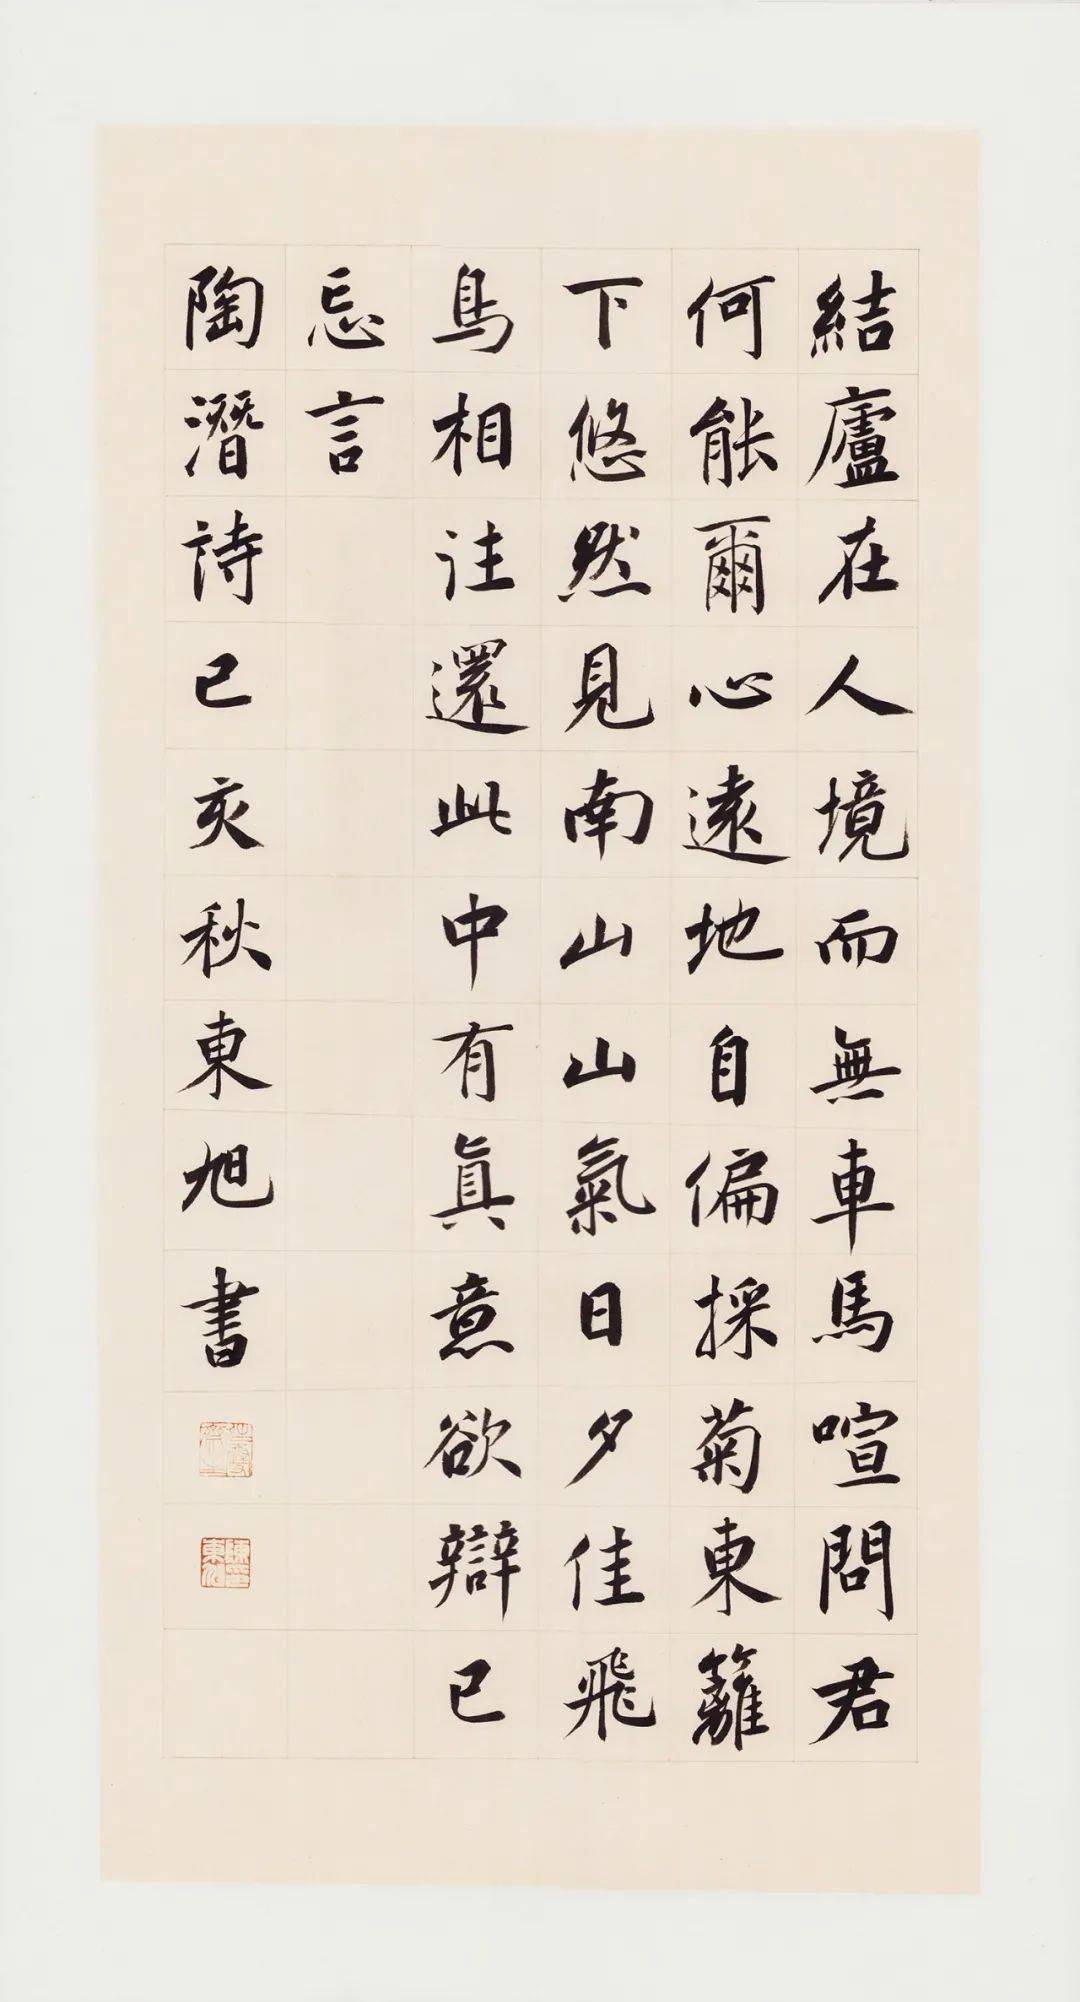 結廬在人境而無車馬喧問君
何能爾心遠地自偏採菊東籬
下悠然見南山山氣日夕佳飛
鳥相往還此中有眞意欲辯已
忘言
陶潛詩己亥秋東旭書